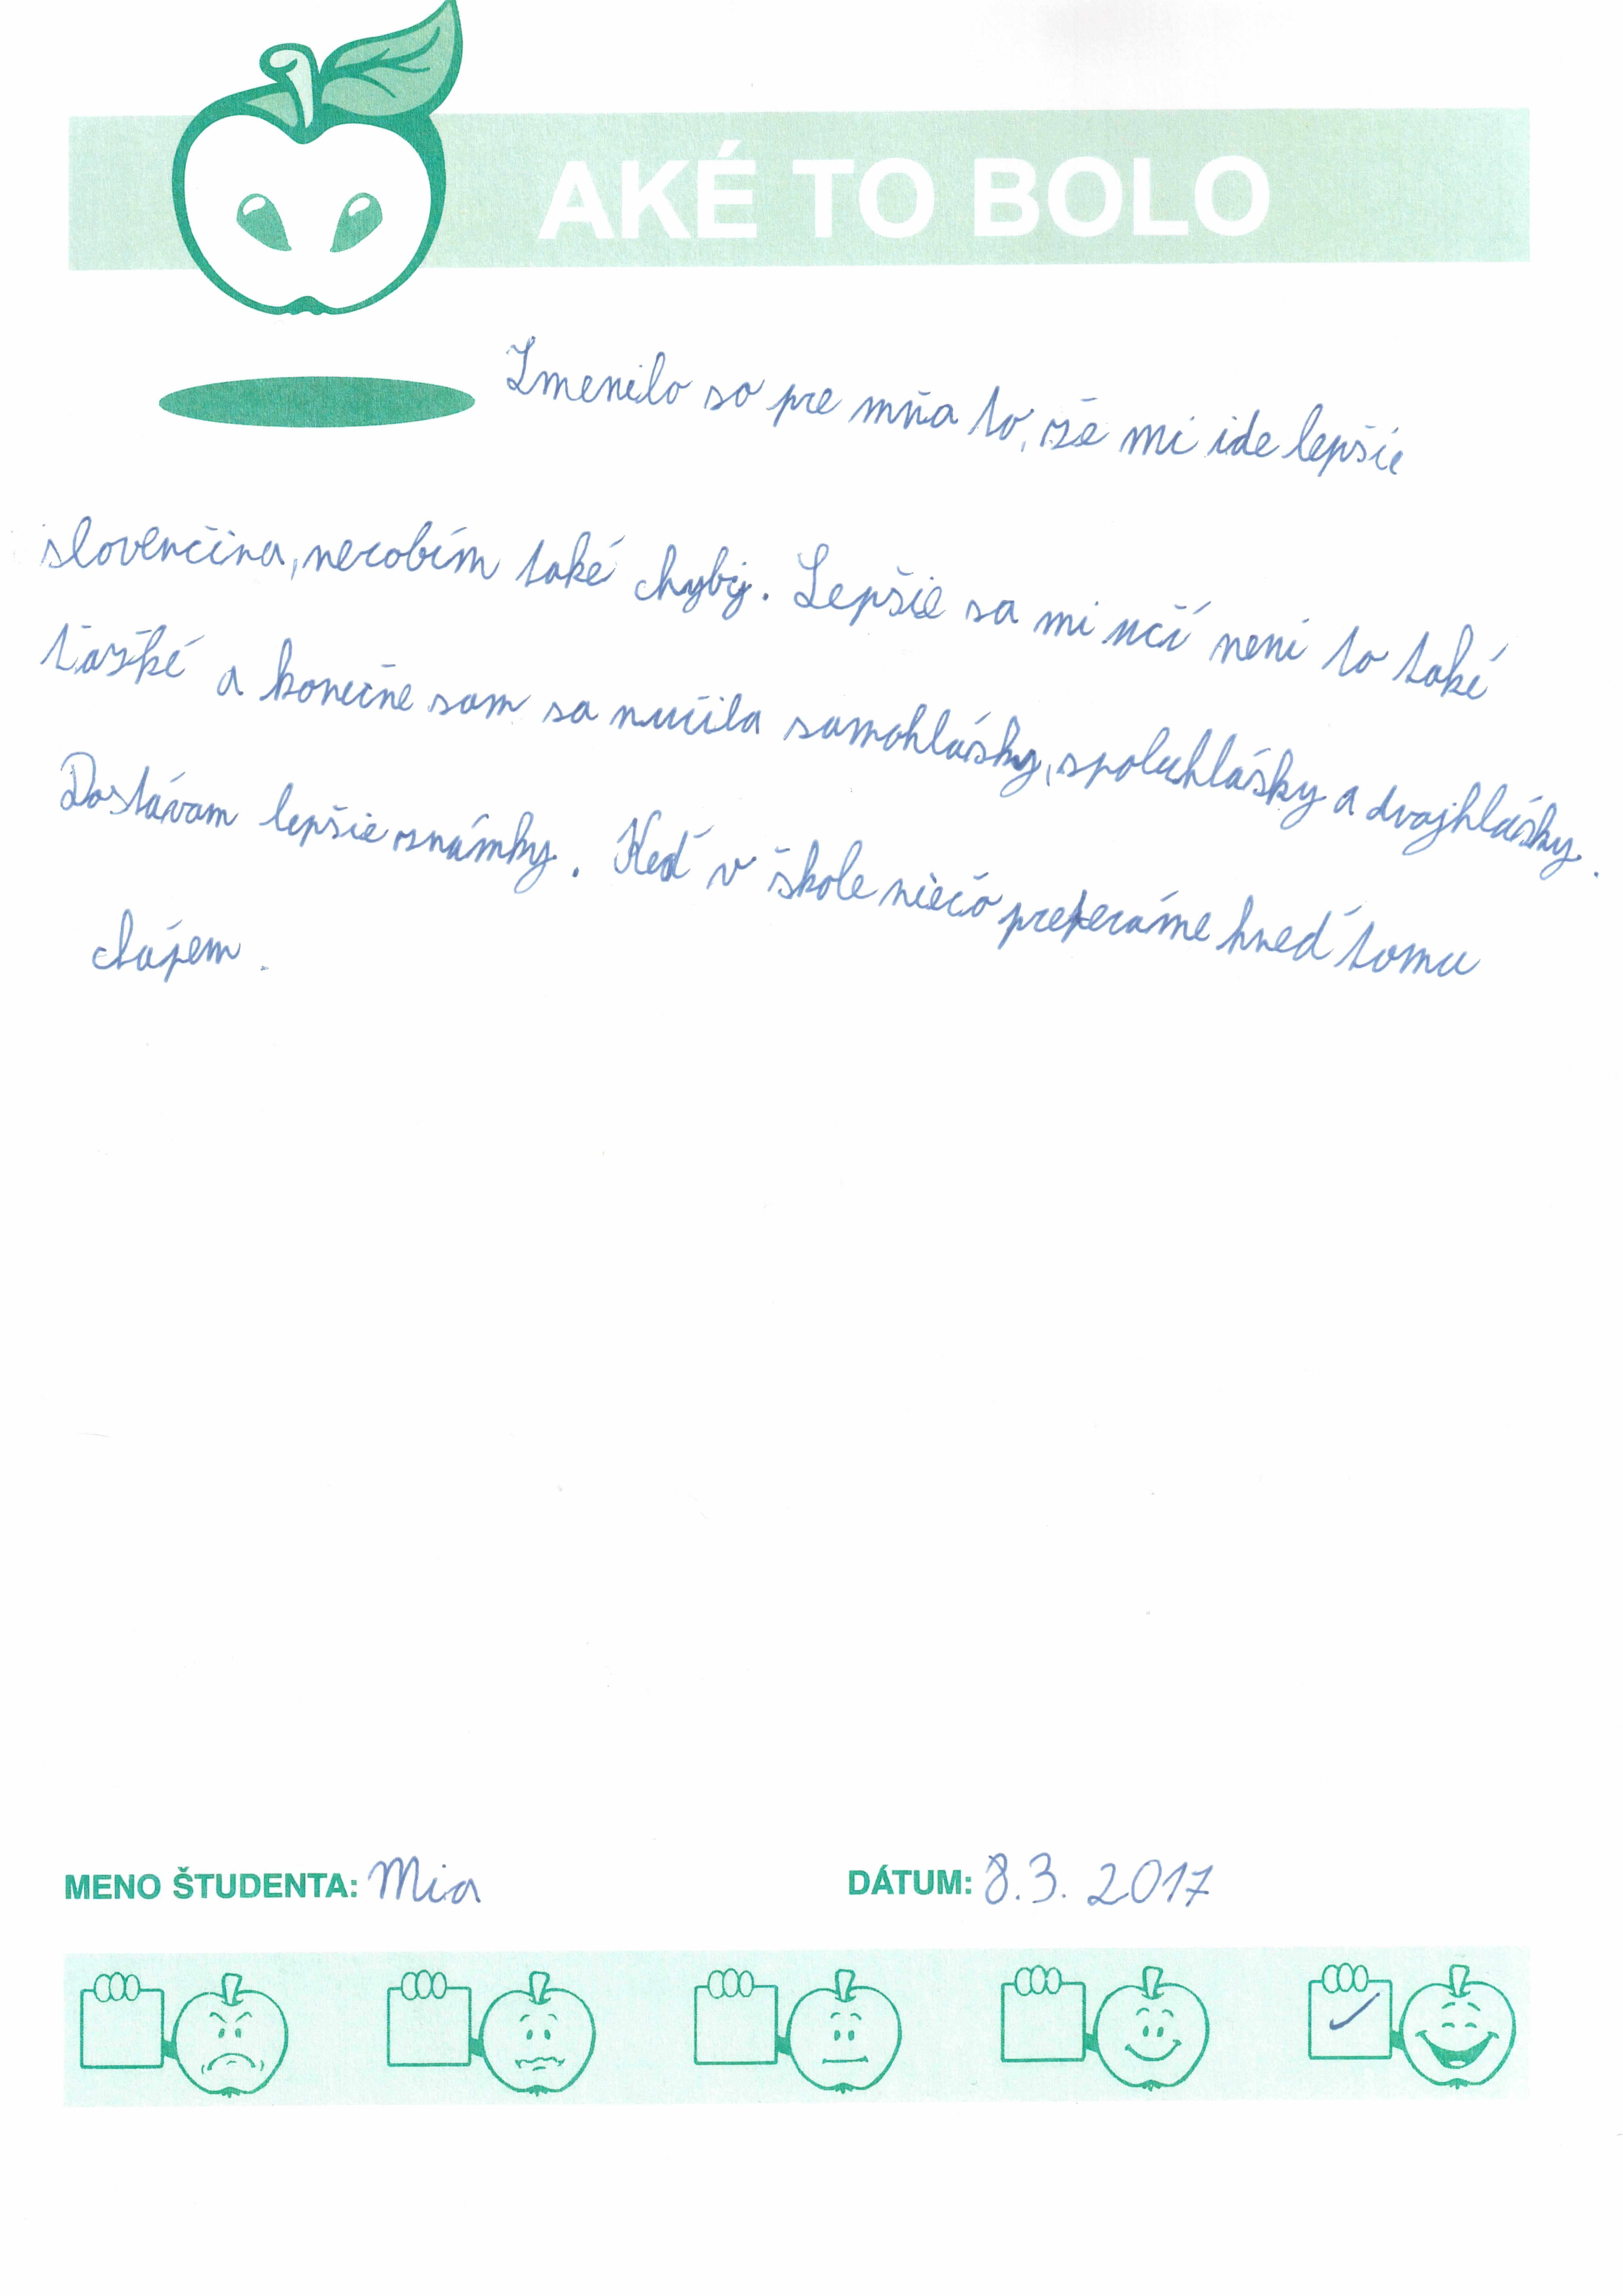 AKÉ TO BOLO
Zmenilo so pre mňa to, že mi ide lepšie
slovenčina, nerobím také chyby. Lepšie sa mi učí neni to také
ťažké a konečne som sa naučila samohlásky, spoluhlásky a dvojhlásky.
Dostávam lepšie známky. Keď v škole niečo preberáme hneď tomu
chápem.
MENO ŠTUDENTA: Mia DÁTUM: 8.3. 2017